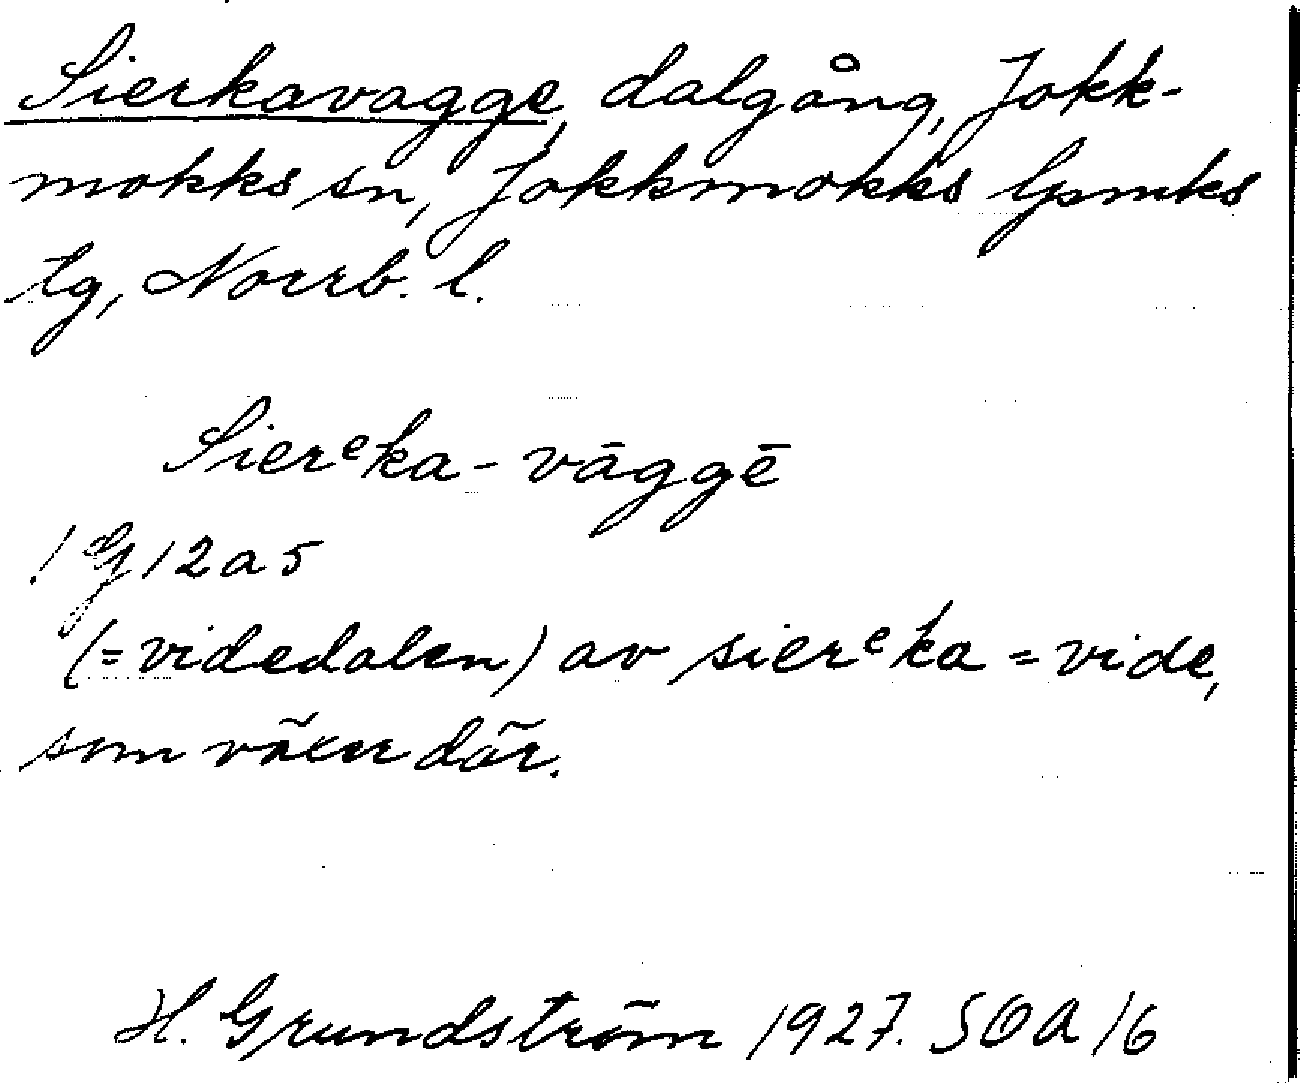 Sierkavagge, dalgång, Jokk-
mokks sn, Jokkmokks lpmks
tg, Norrb. l.
Sierᵉka - vāggē
! G 12 a 5
(= videdalen) av sierᵉka = vide,
som växer där.
H. Grundström 1927. SOA 16